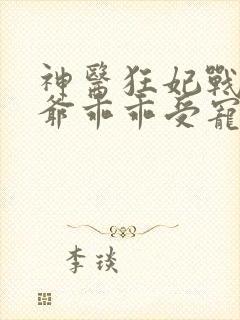 神醫狂妃戰
爺乖乖受寵
李琰